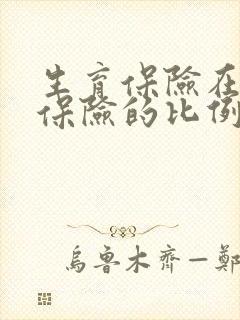 生育保險在
保險的比例
烏魯木齊—鄭